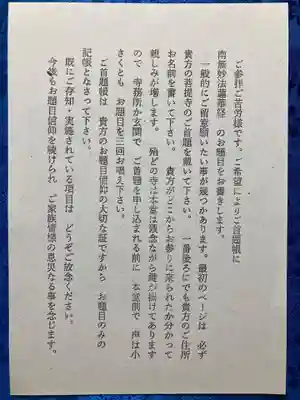 ご参拝ご苦労様です。ご希望によりご首題帳に
南無妙法蓮華経 のお題目をお書きします。
一般的にご留意願いたい事が幾つかあります。最初のページは 必ず
貴方の菩提寺のご首題を戴いて下さい。 一番後ろにでも貴方のご住所
お名前を書いて下さい。 貴方がどこからお参りに来られたか分かって
親しみが増します。 殆どの寺は本堂は残念ながら鍵が掛けてあります
ので 寺務所か玄関で ご首題を申し込まれる前に 本堂前で 声は小
さくとも お題目を三回お唱え下さい。
ご首題帳は 貴方のお題目信仰の大切な証ですから お題目のみの
記帳となさって下さい。
既にご存知・実施されている項目は どうぞご放念ください。
今後もお題目信仰を続けられ ご家族皆様の息災なる事を念じます。